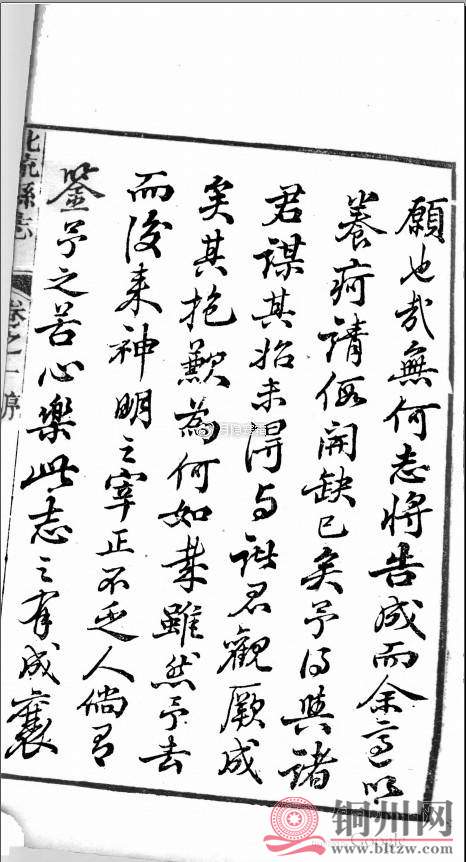 願也哉無何志將告成而余適以
養疴請假開缺已矣予得與諸
君謀其始未得与諸君觀厥成
矣其抱歉為何如哉雖然予去
而後来神明之宰正不乏人倘有
鑒予之苦心樂此志之有成襄
北流縣志 卷之一 序
铜州网
www.bltzw.com